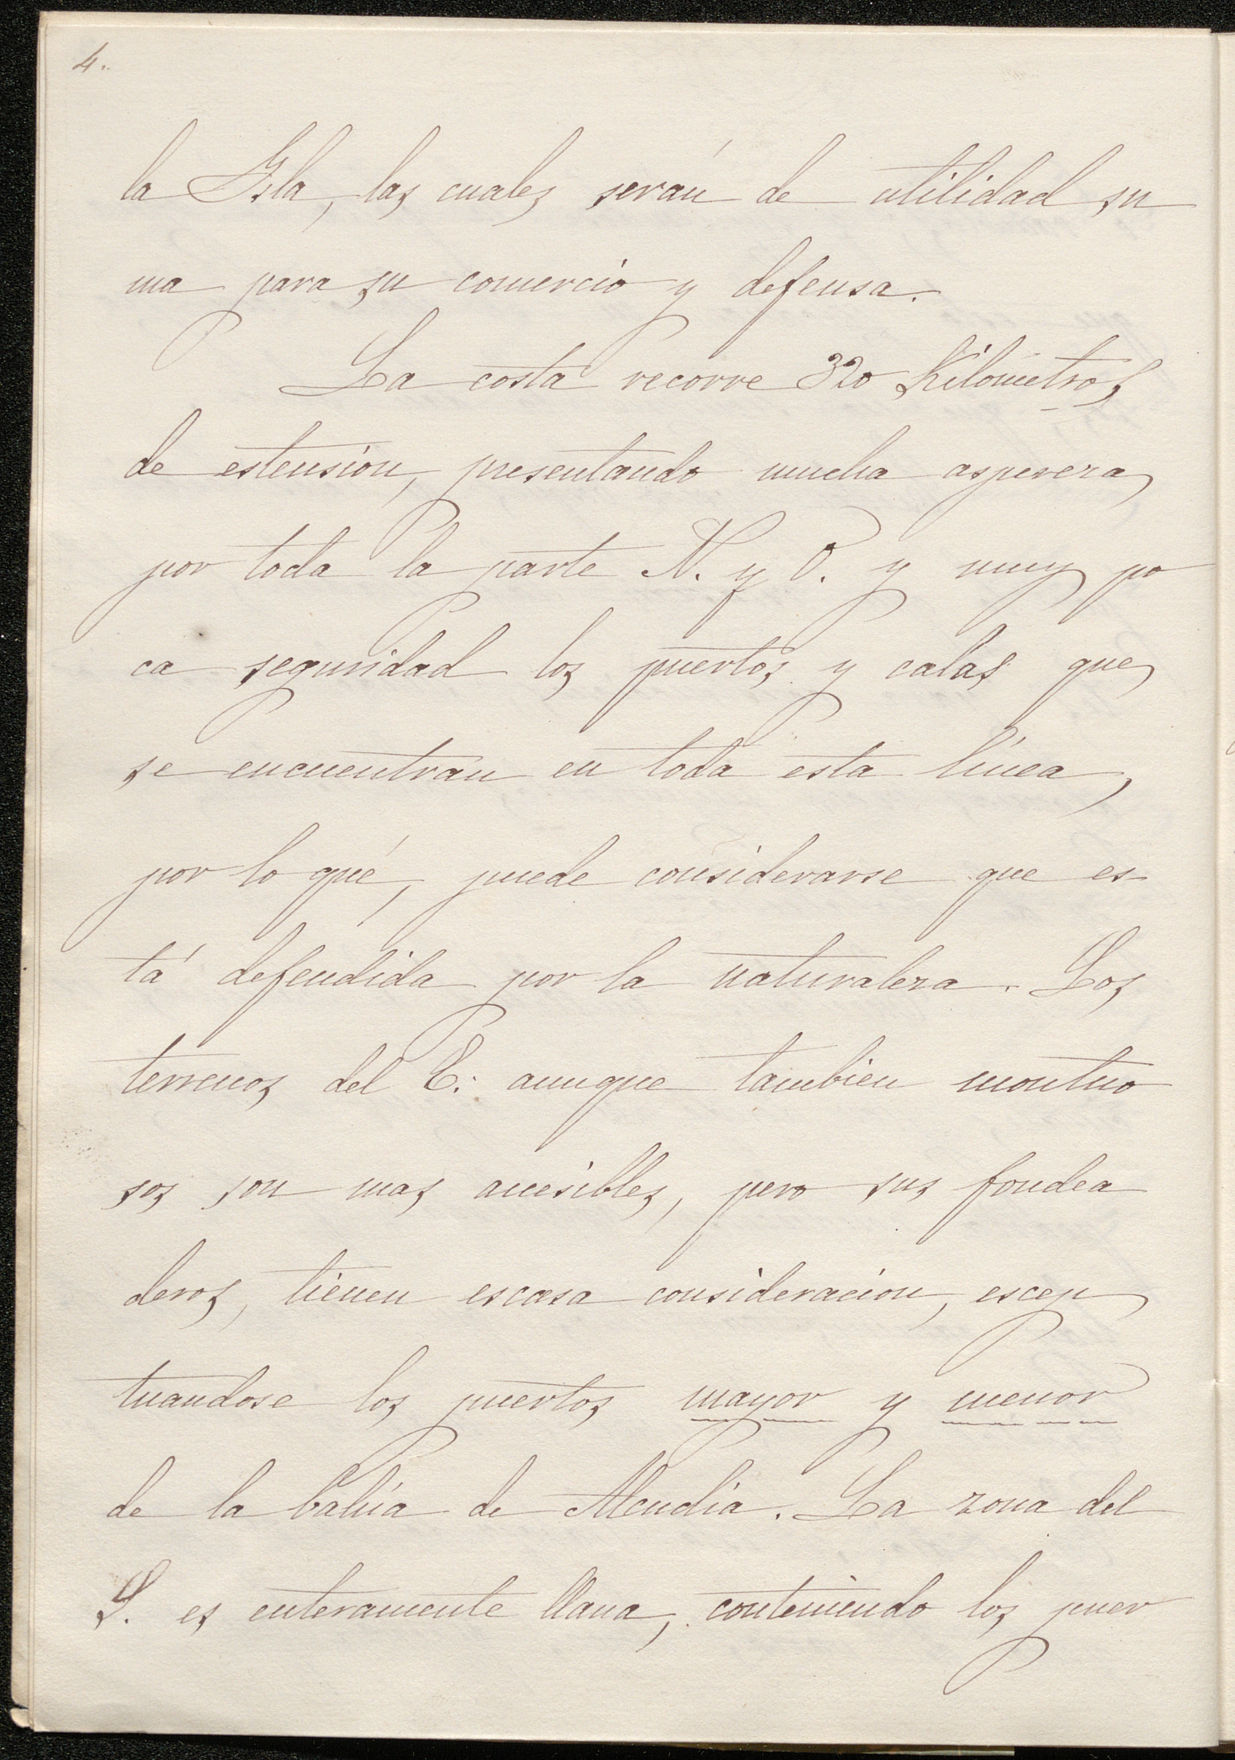 4.
la Isla, las cuales serán de utilidad su
ma para su comercio y defensa.
La costa recorre 320 Kilómetros
de estension, presentando mucha aspereza
por toda la parte N. y O. y muy po
ca seguridad los puertos y calas que
se encuentran en toda esta línea,
por lo qué, puede considerarse que es
tá defendida por la naturaleza. Los
terrenos del E. aunque tambien montuo
sos son mas accesibles, pero sus fondea
deros, tienen escasa consideracion, escep
tuandose los puertos mayor y menor
de la bahía de Alcudia. La zona del
S. es enteramente llana, conteniendo los puer